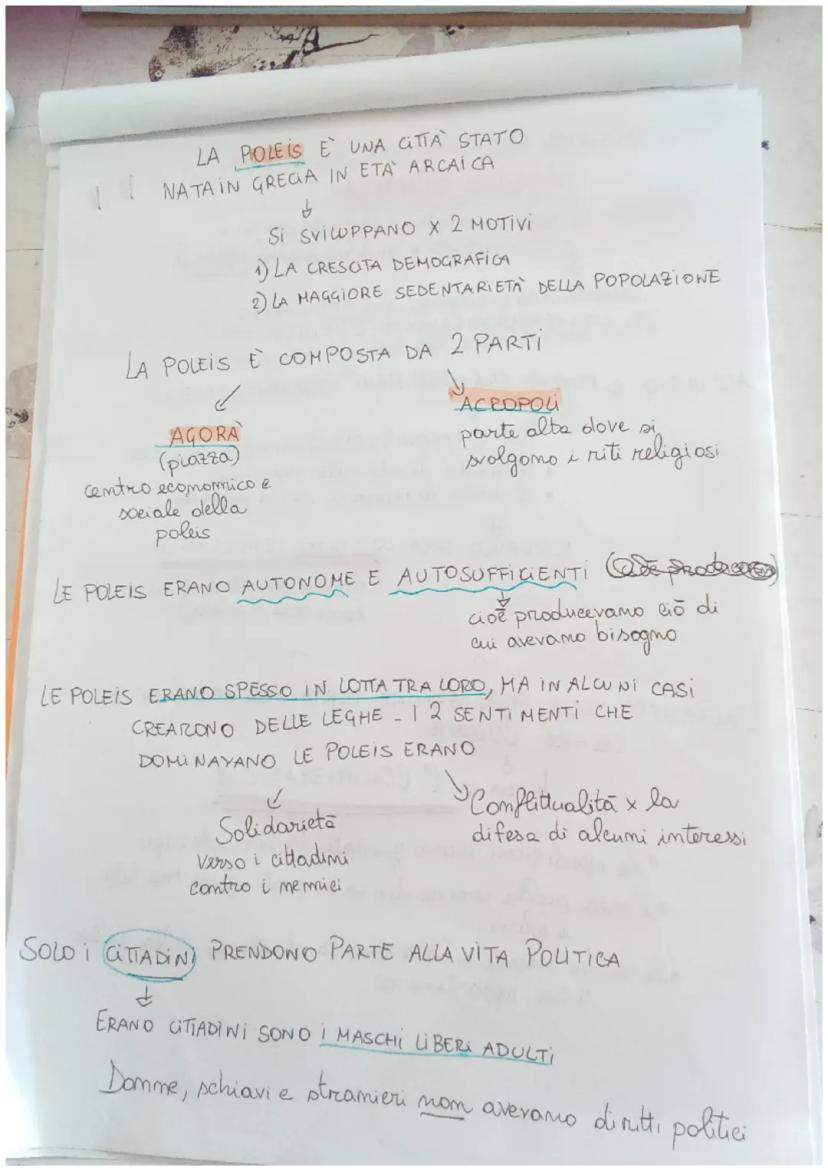 LA POLEIS È UNA CITTÀ STATO
NATA IN GRECIA IN ETÀ ARCAICA
SI SVILUPPANO X 2 MOTIVI
1) LA CRESCITA DEMOGRAFICA
2) LA MAGGIORE SEDENTARIETÀ DELLA POPOLAZIONE
LA POLEIS È COMPOSTA DA 2 PARTI
AGORÀ
(piazza)
centro economico e
sociale della
poleis
ACROPOLI
parte alta dove si
svolgono i riti religiosi
LE POLEIS ERANO AUTONOME E AUTOSUFFICIENTI
cioè producevano ciò di
cui avevano bisogno
LE POLEIS ERANO SPESSO IN LOTTA TRA LORO, MA IN ALCUNI CASI
CREARONO DELLE LEGHE - I 2 SENTIMENTI CHE
DOMINAVANO LE POLEIS ERANO
Solidarietà
verso i cittadini
contro i nemici
Conflittualità x la
difesa di alcuni interessi
SOLO I CITTADINI PRENDONO PARTE ALLA VITA POLITICA
ERANO CITTADINI SONO I MASCHI LIBERI ADULTI
Donne, schiavi e stranieri non avevano diritti politici